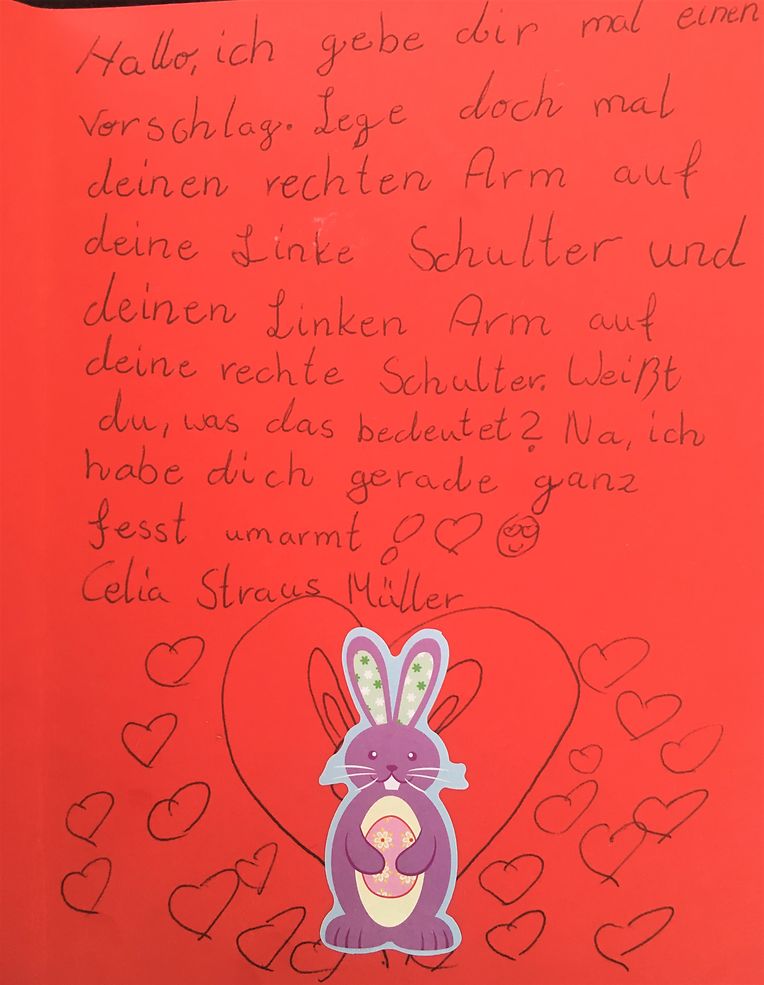 Hallo, ich gebe dir mal einen
Vorschlag. Lege doch mal
deinen rechten Arm auf
deine Linke Schulter und
deinen Linken Arm auf
deine rechte Schulter. Weißt
du, was das bedeutet? Na, ich
habe dich gerade ganz
fesst umarmt!
Celia Straus Müller